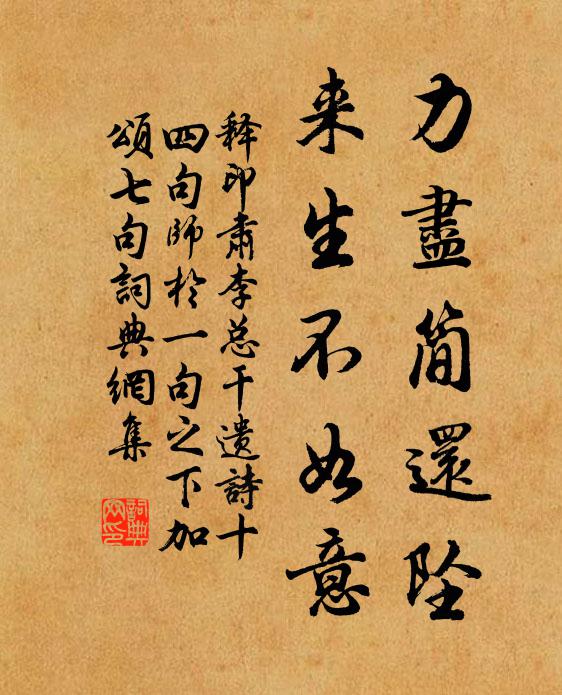 力盡简還墜
来生不如意
释印肃李总干遗詩十
四句師於一句之下加
頌七句詞典網集
詞典
网印